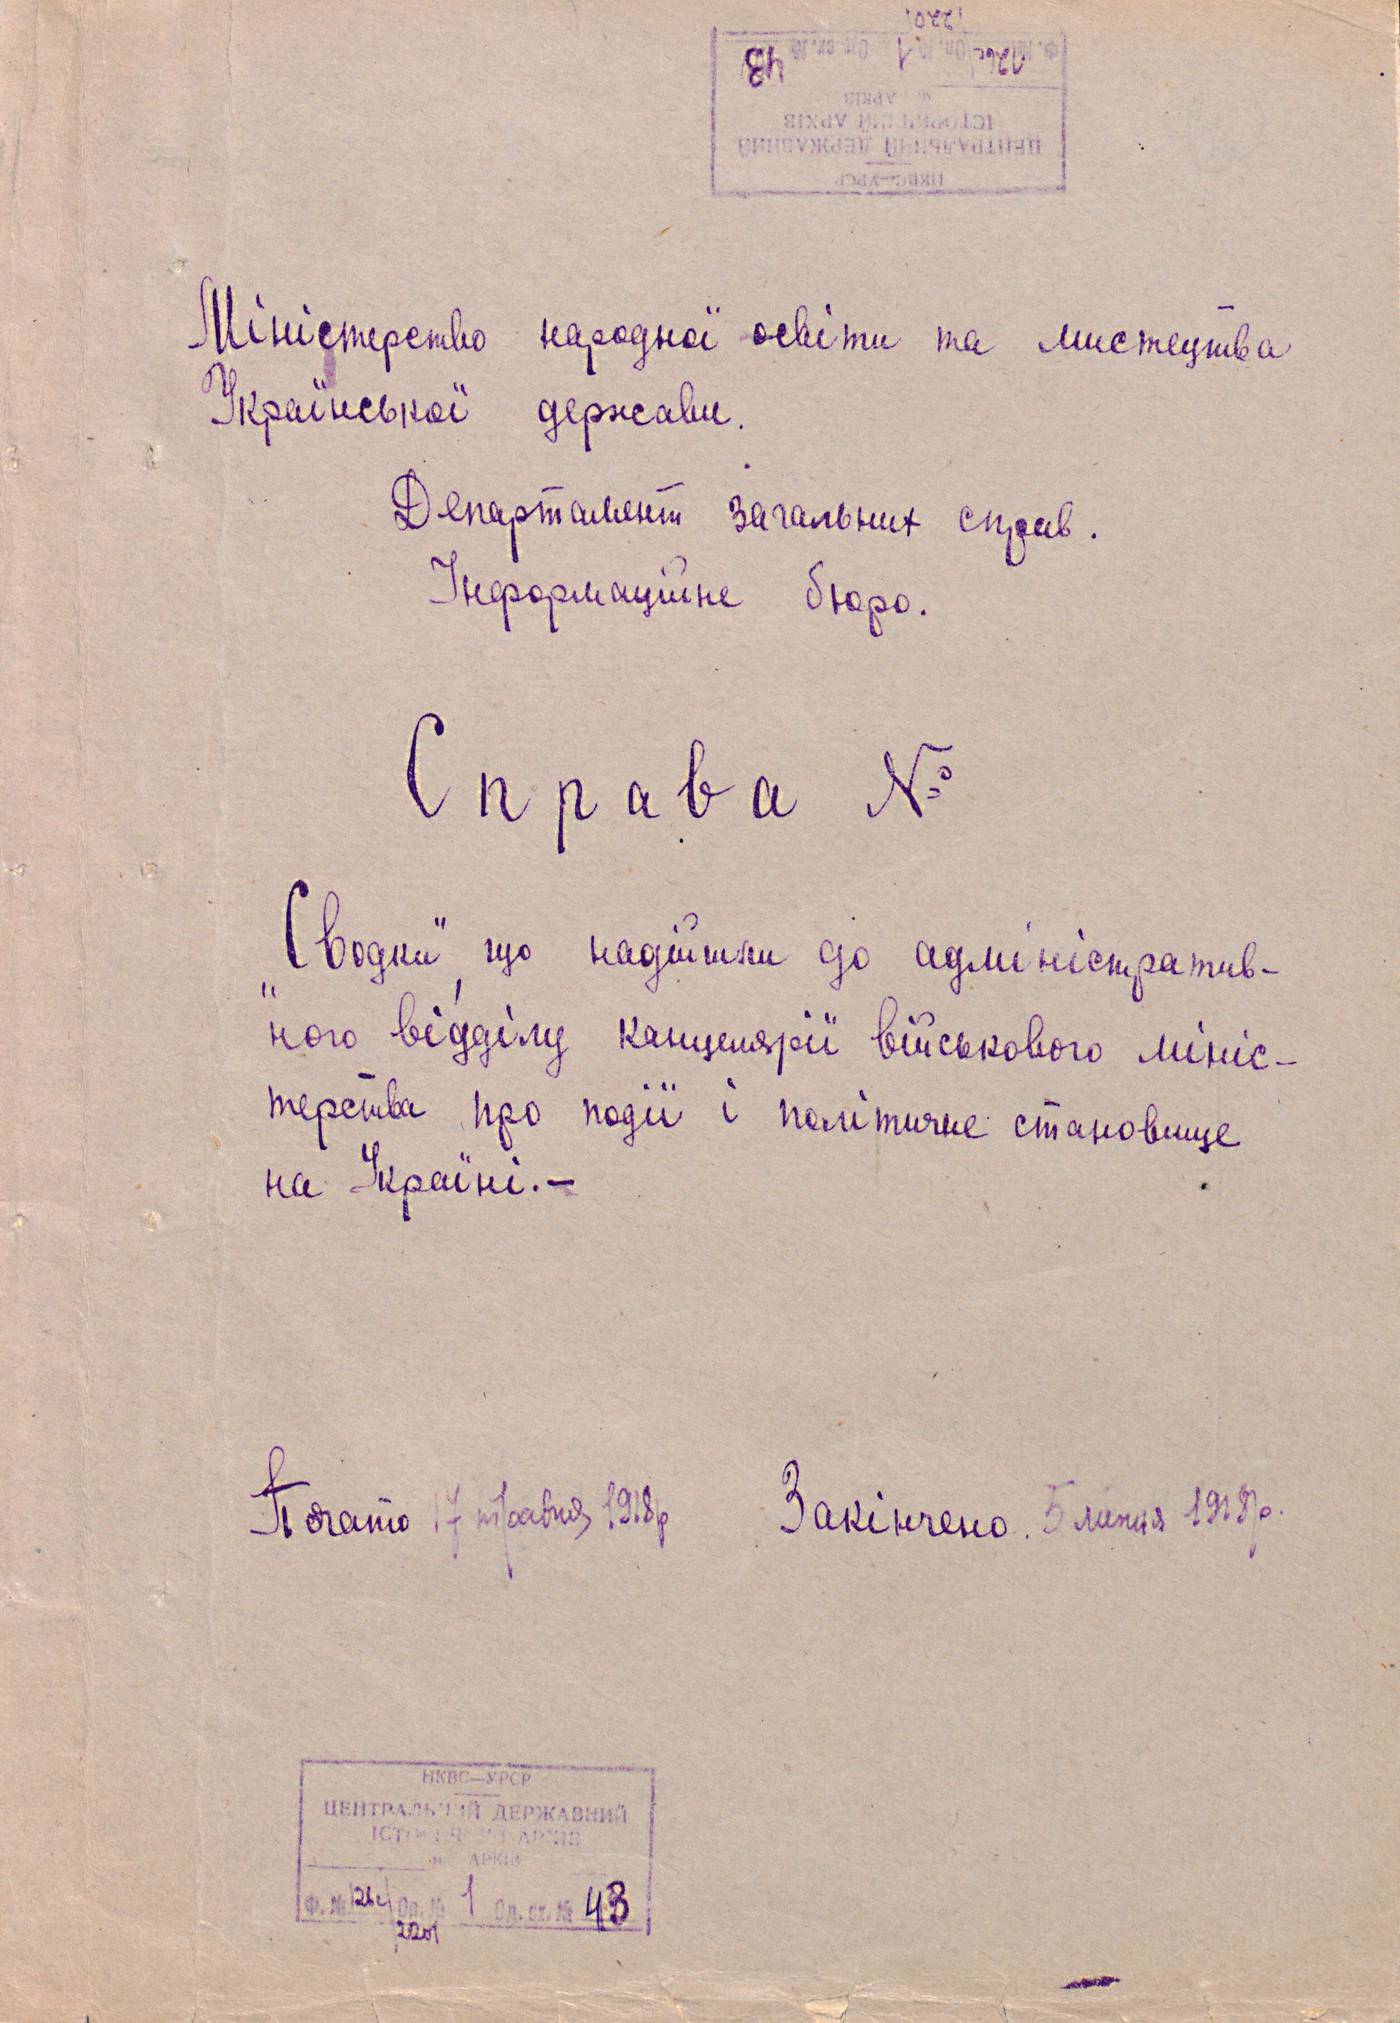 220
Ф. № 126с Оп. № 1 Од. сх. № 43
АРХІВ
ІСТОРИЧНИЙ АРХІВ
ЦЕНТРАЛЬНИЙ ДЕРЖАВНИЙ
НКВС—УРСР
Міністерство народної освіти та мистецтва
Української держави.
Департамент загальних справ.
Інформаційне бюро.
Справа №
"Сводки", що надійшли до адміністратив-
ного відділу канцелярії військового мініс-
терства про події і політичне становище
на Україні.—
Почато 17 травня 1918р Закінчено. 5 липня 1918р.
НКВС—УРСР
ЦЕНТРАЛЬНИЙ ДЕРЖАВНИЙ
ІСТОРИЧНИЙ АРХІВ
АРХІВ
Ф. № 126с Оп. № 1 Од. сх. № 43
2201